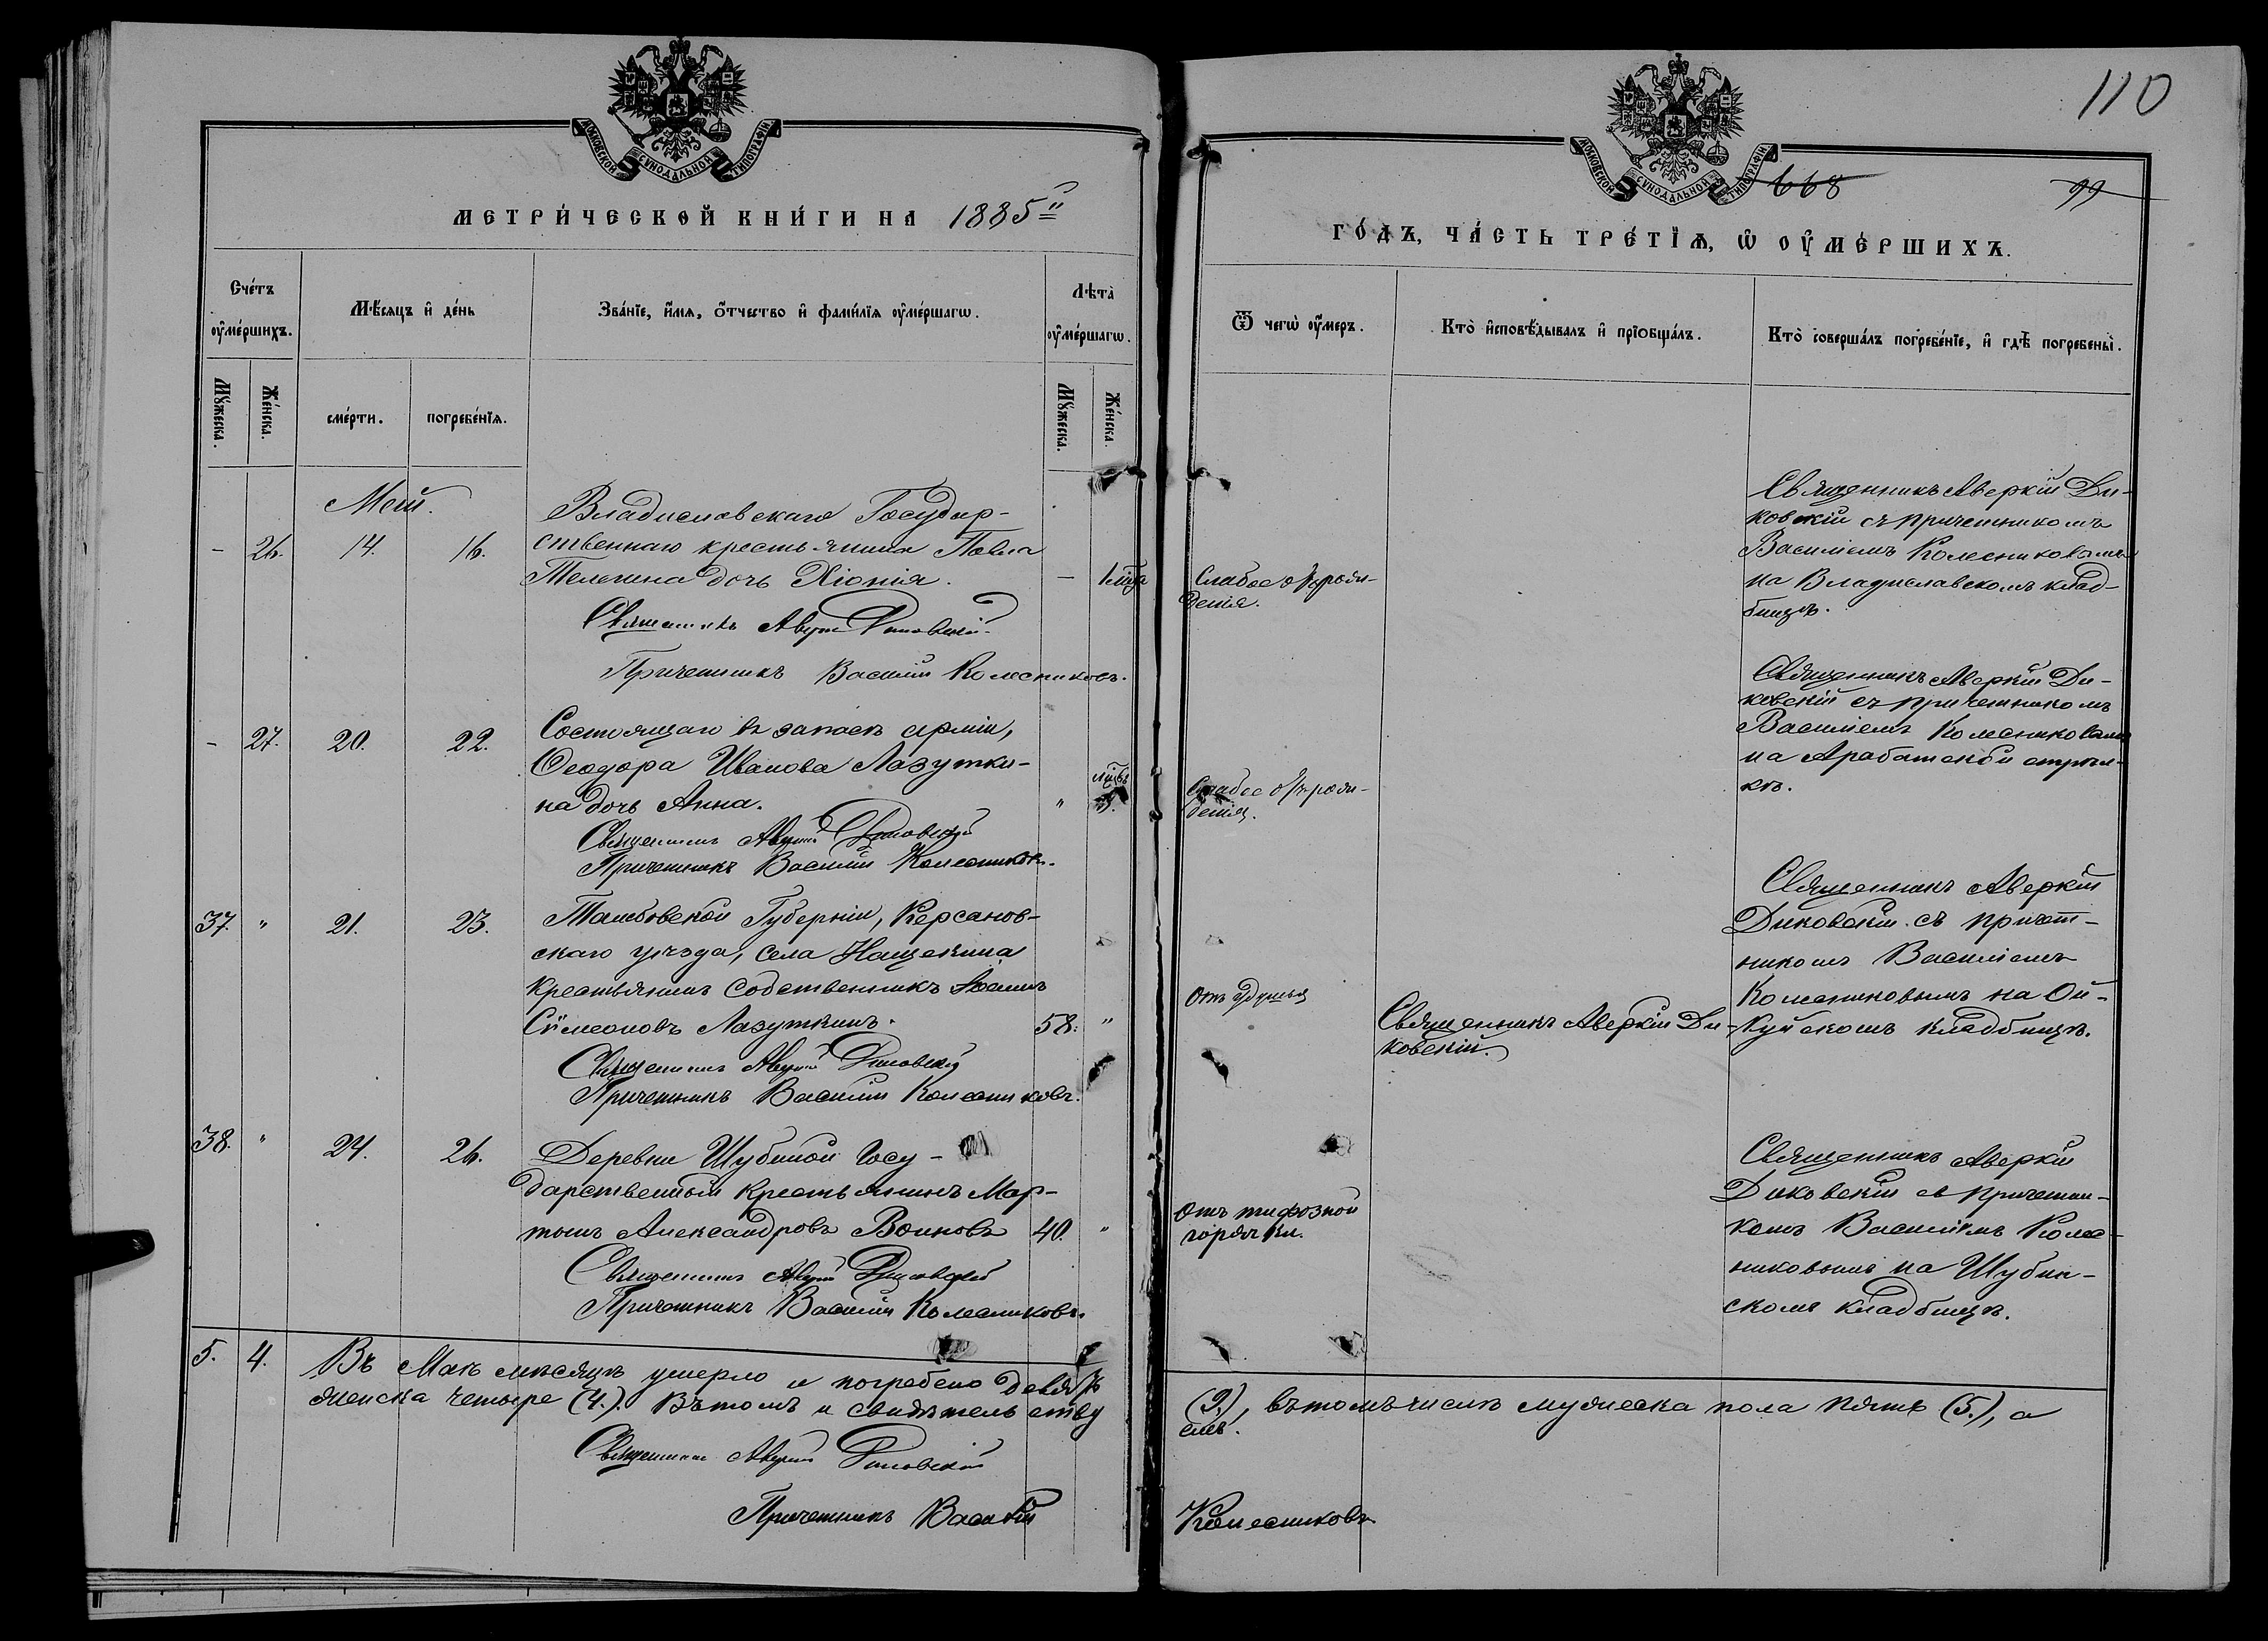 110
МОСКОВСКОЙ СѴНОДАЛЬНОЙ ТИПОГРАФІИ
МОСКОВСКОЙ СѴНОДАЛЬНОЙ ТИПОГРАФІИ
668
99
МЕТРИ́ЧЕСКОЙ КНИ́ГИ НА 1885
ГО́ДЪ, ЧА́СТЬ ТРЕ́ТЇѦ, Ѡ ОУ҆МЕ́РШИХЪ.
Сче́тъ оу҆ме́ршихъ.
Мѣ́сяцъ и҆ де́нь
Зва́нїе, и҆́мя, о҆́тчество и҆ фами́лїя оу҆ме́ршагѡ.
Лѣ́та оу҆ме́ршагѡ.
Ѿ чегѡ̀ оу҆́меръ.
Кто̀ и҆сповѣ́дывалъ и҆ прїобща́лъ.
Кто̀ соверша́лъ погребе́нїе, и҆ гдѣ̀ погребены̀.
Мꙋ́жеска.
Же́нска.
сме́рти.
погребе́нїѧ.
Мꙋ́жеска.
Же́нска.
Май.
Владиславскаго Государ-
- 26. 14. 16. ственнаго крестьянина Павла
Телегина дочь Хіонія. -
Священникъ Аверкій Диковскій
Причетникъ Василій Колесниковъ.
Слабое отъ рож-
денія.
Священникъ Аверкій Ди-
ковскій съ причетникомъ
Василіемъ Колесниковымъ
на Владиславскомъ клад-
бищѣ.
Состоящаго въ запасѣ арміи,
- 27. 20. 22.
Ѳеодора Иванова Лазутки-
на дочь Анна. "
Священникъ Аверкій Диковскій
Причетникъ Василій Колесниковъ.
Слабое отъ рож-
денія.
Священникъ Аверкій Ди-
ковскій съ причетникомъ
Василіемъ Колесниковымъ
на Арабатской стрѣл-
кѣ.
37. " 21. 23. Тамбовской Губерніи, Керсанов-
скаго уѣзда, села Нащекина
крестьянинъ собственникъ
Сѵмеоновъ Лазуткинъ. 58. "
Священникъ Аверкій Диковскій
Причетникъ Василій Колесниковъ.
Отъ удушья
Священникъ Аверкій Ди-
ковскій.
Священникъ Аверкій
Диковскій съ причет-
никомъ Василіемъ
Колесниковымъ на Ой-
куйскомъ кладбищѣ.
38. " 24. 26. Деревни Шубиной Госу-
дарственный крестьянинъ Мар-
тынъ Александровъ Воиновъ 40. "
Священникъ Аверкій Диковскій
Причетникъ Василій Колесниковъ.
Отъ тифозной
горячки.
Священникъ Аверкій
Диковскій съ причетни-
комъ Василіемъ Колес-
никовымъ на Шубин-
скомъ кладбищѣ.
5. 4. Въ Маѣ мѣсяцѣ умерло и погребено девять (9.), въ томъ числѣ мужеска пола пять (5.), а
женска четыре (4.). Въ томъ и свидѣтельству емъ.
Священникъ Аверкій Диковскій
Причетникъ Василій Колесниковъ